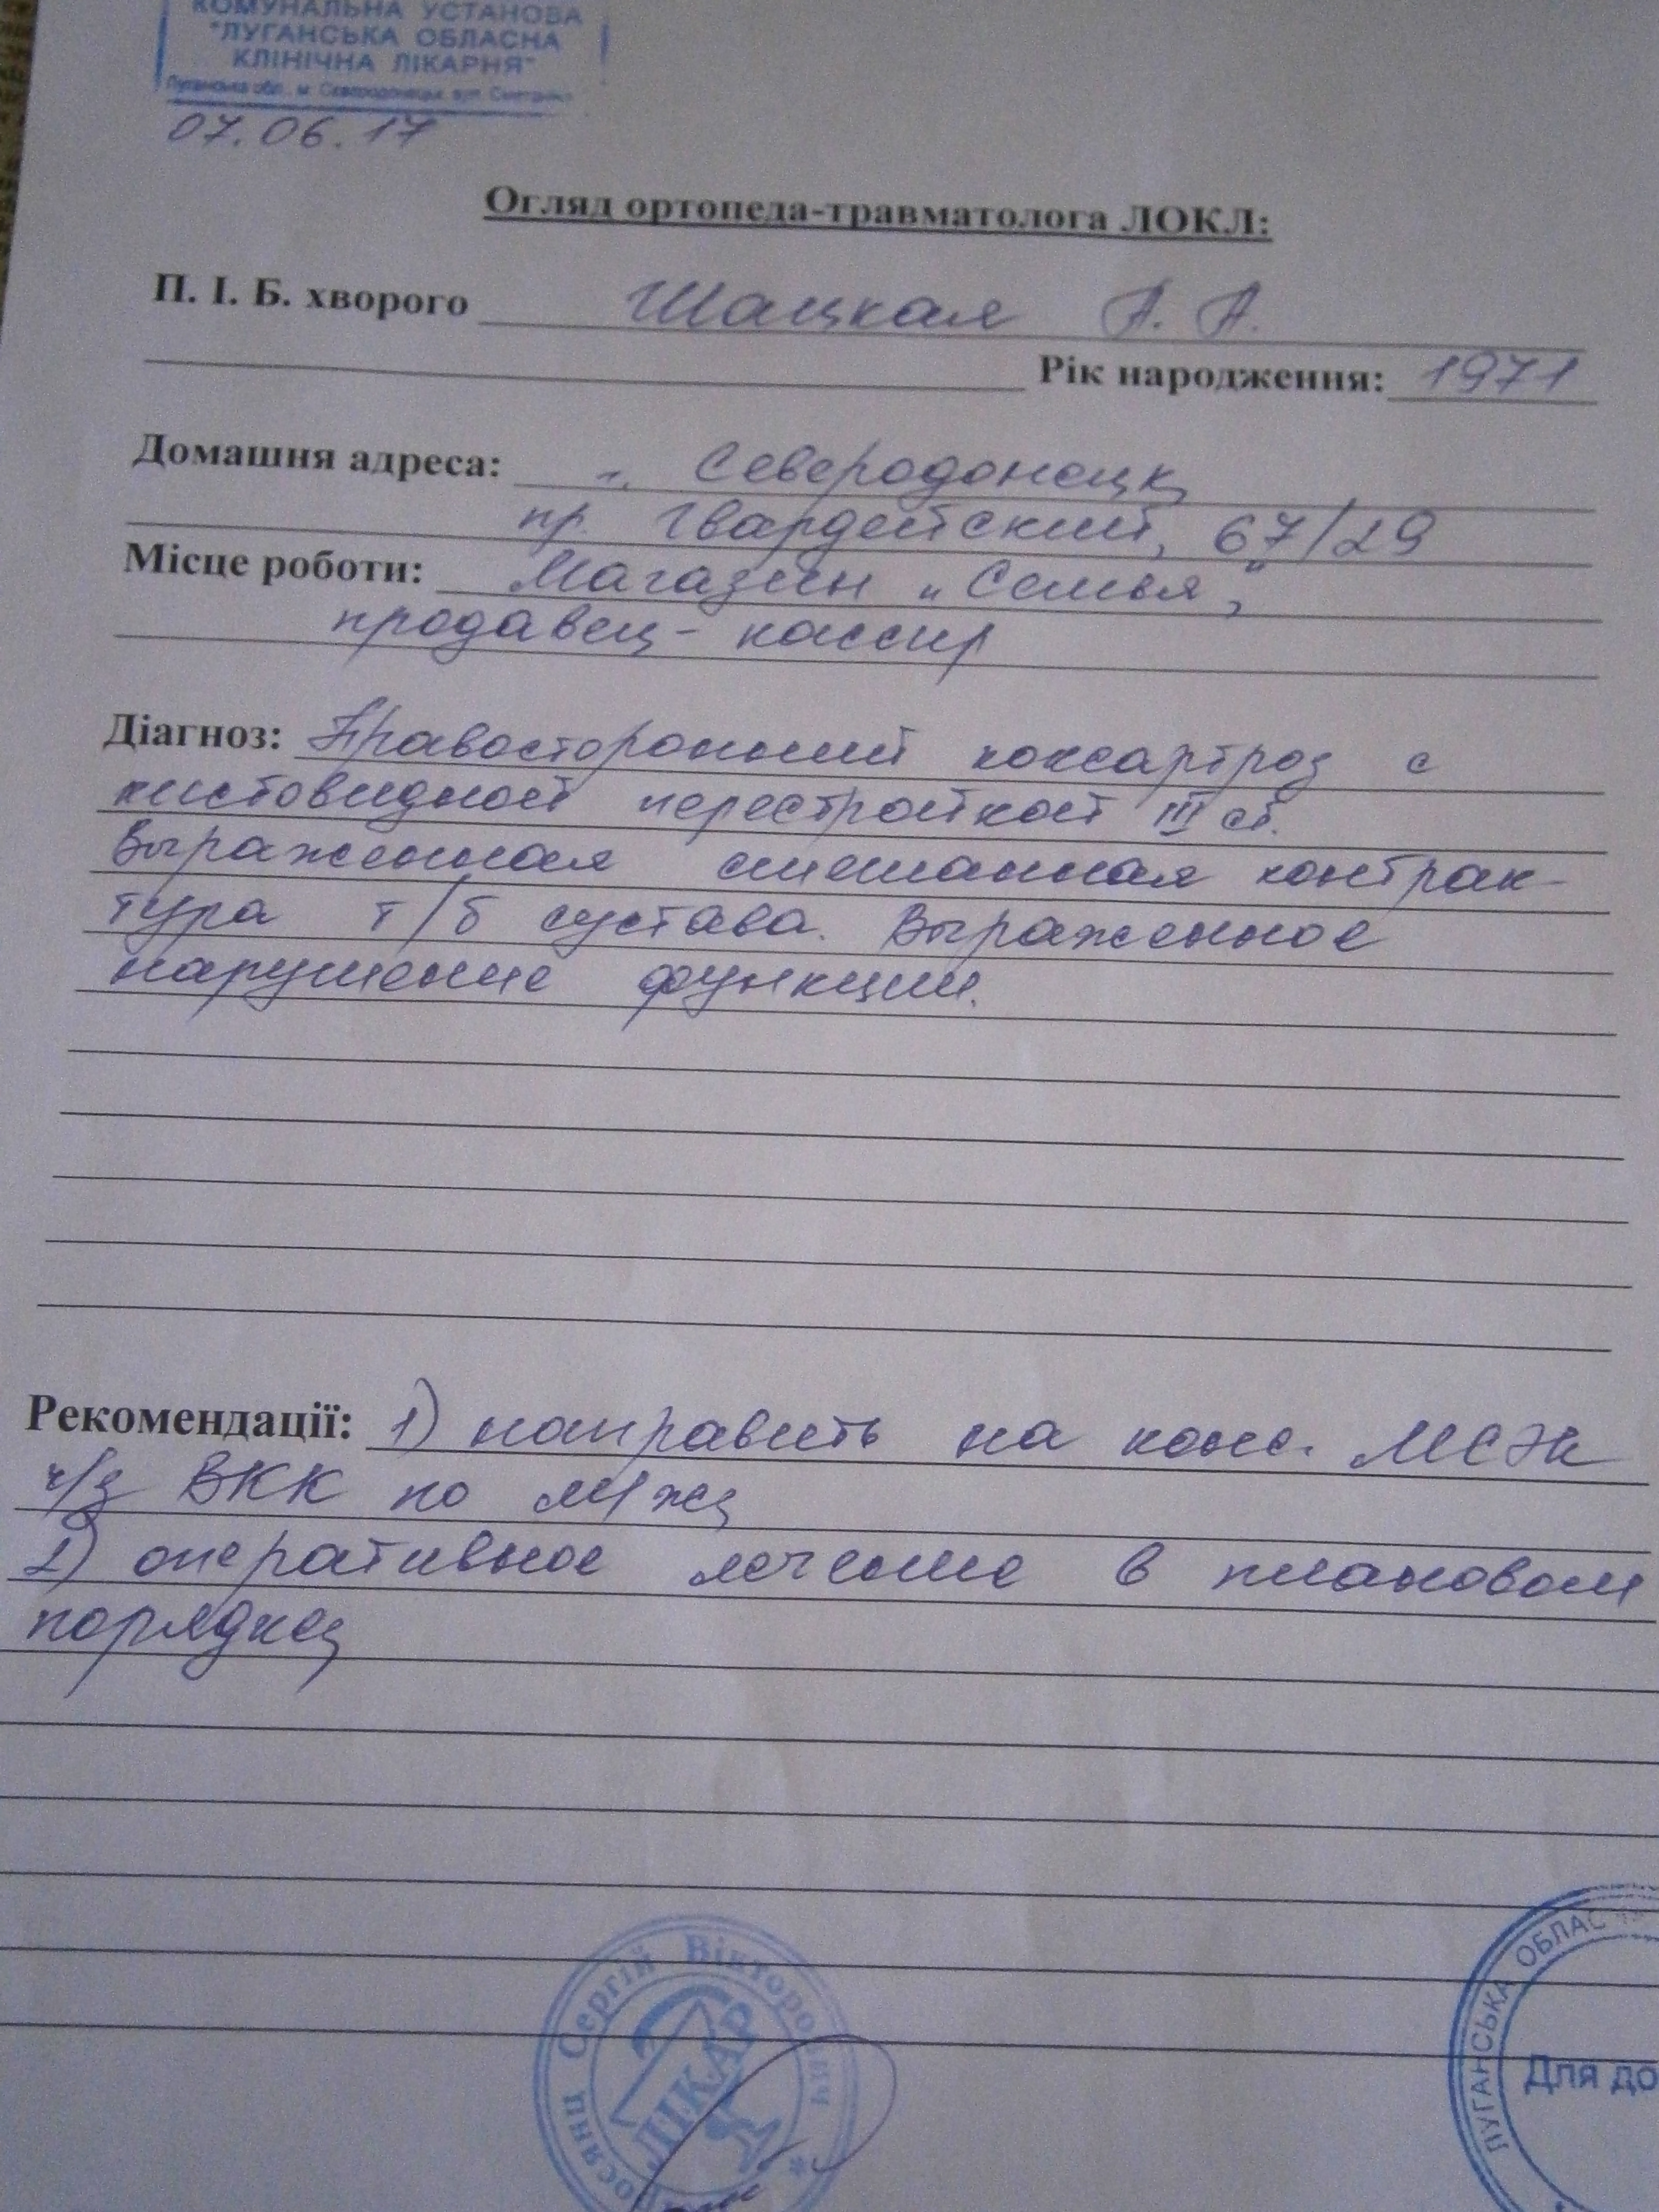 КОМУНАЛЬНА УСТАНОВА
"ЛУГАНСЬКА ОБЛАСНА
КЛІНІЧНА ЛІКАРНЯ"
Луганська обл., м. Сєвєродонецьк, вул.
07.06.17
Огляд ортопеда-травматолога ЛОКЛ:
П. І. Б. хворого Шацкая А. А.
Рік народження: 1971
Домашня адреса: г. Северодонецк,
пр. Гвардейский, 67/29
Місце роботи: Магазин „Семья",
продавец-кассир
Діагноз: Правосторонний коксартроз с
кистовидной перестройкой III ст.
Выраженная смешанная контрак-
тура т/б сустава. Выраженное
нарушение функции.
Рекомендації: 1) направить на конс. МСЭК
ч/з ВКК по м/ж
2) оперативное лечение в плановом
порядке
Сергій Вікторович
ЛІКАР
ЛУГАНСЬКА ОБЛАС
Для до